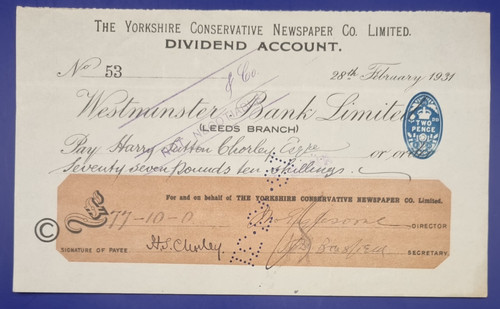 THE YORKSHIRE CONSERVATIVE NEWSPAPER CO. LIMITED.
DIVIDEND ACCOUNT.
No 53
& Co.
28th February 1931
Westminster Bank Limited
(LEEDS BRANCH)
NOT NEGOTIABLE
TWO PENCE
Pay Harry Sutton Chorley Esqre or order
Seventy seven pounds ten shillings.
For and on behalf of THE YORKSHIRE CONSERVATIVE NEWSPAPER CO. Limited.
£ 77-10-0
DIRECTOR
©
SIGNATURE OF PAYEE H.S. Chorley
SECRETARY.